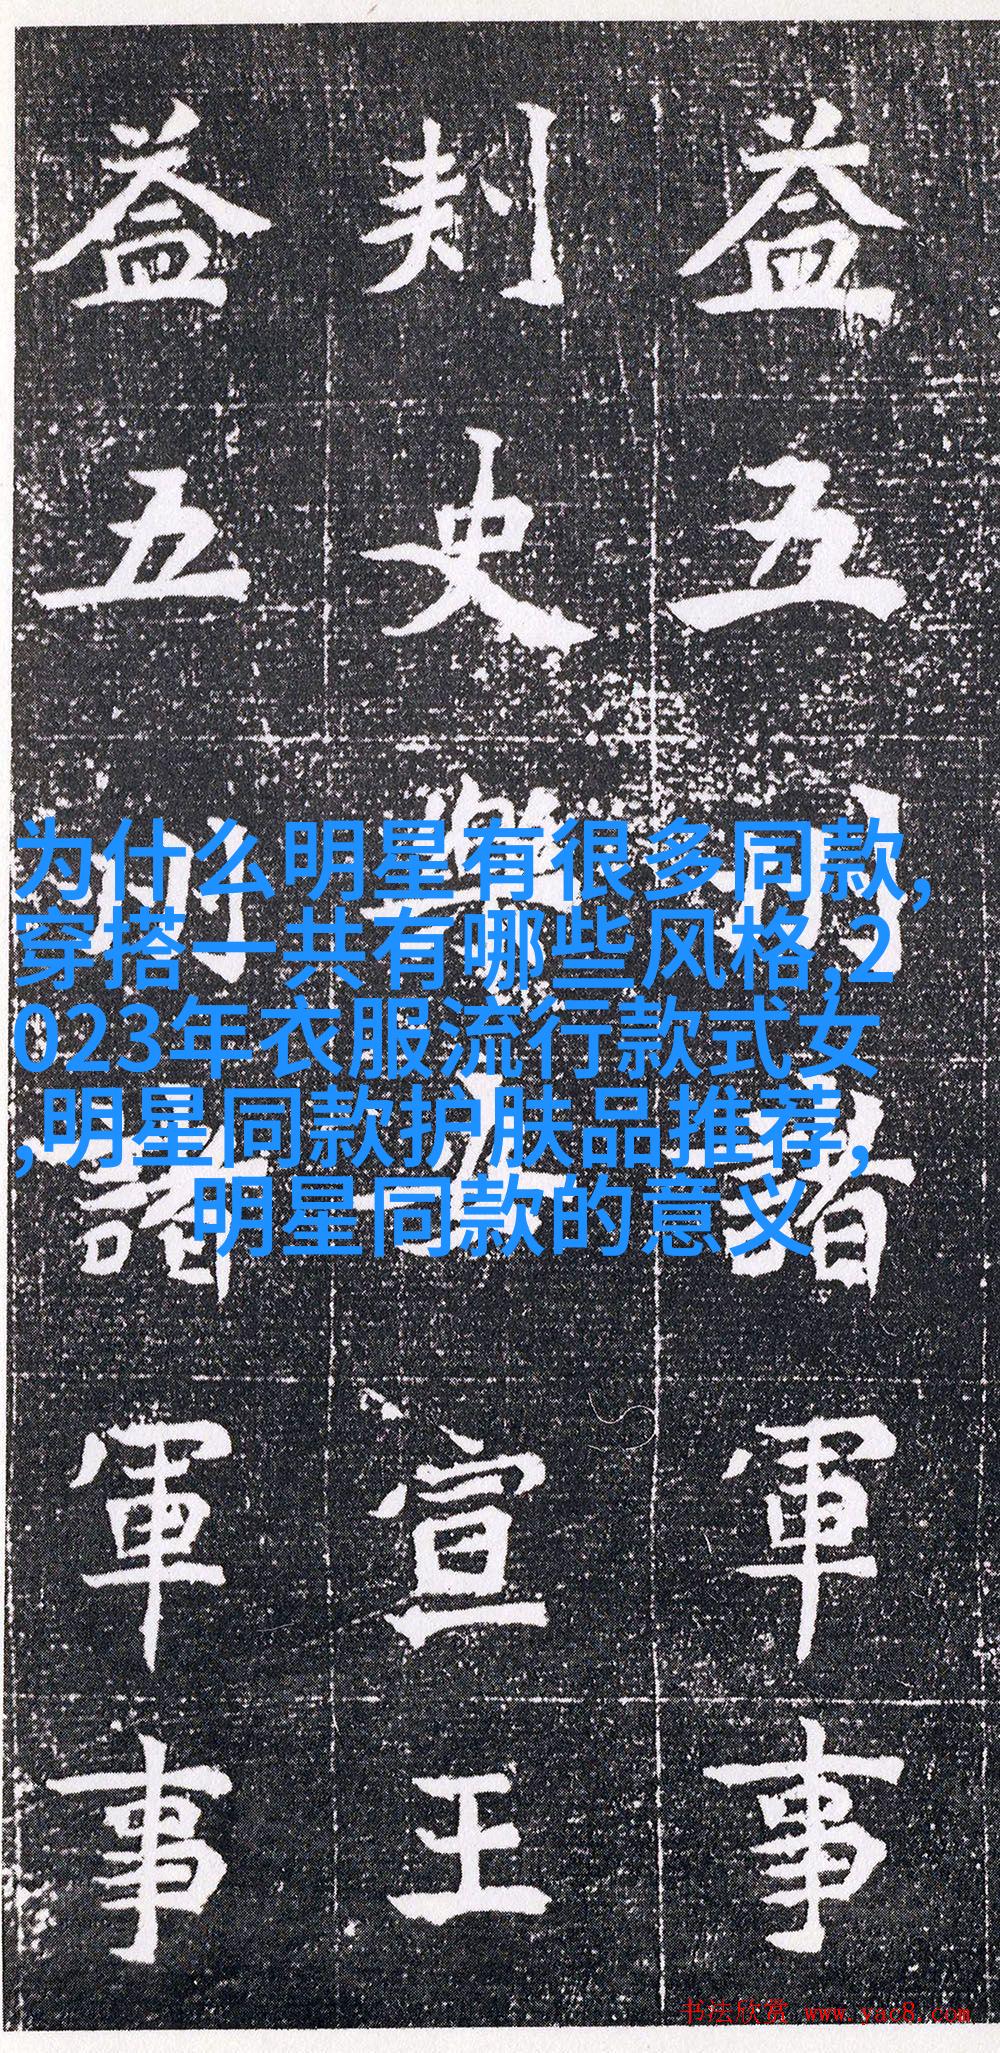 益五諸軍事
刾史樂宣王
益五諸軍事
为什么明星有很多同款,
穿搭一共有哪些风格,2
023年衣服流行款式女
,明星同款护肤品推荐,
明星同款的意义
书法欣赏 www.yac8.com